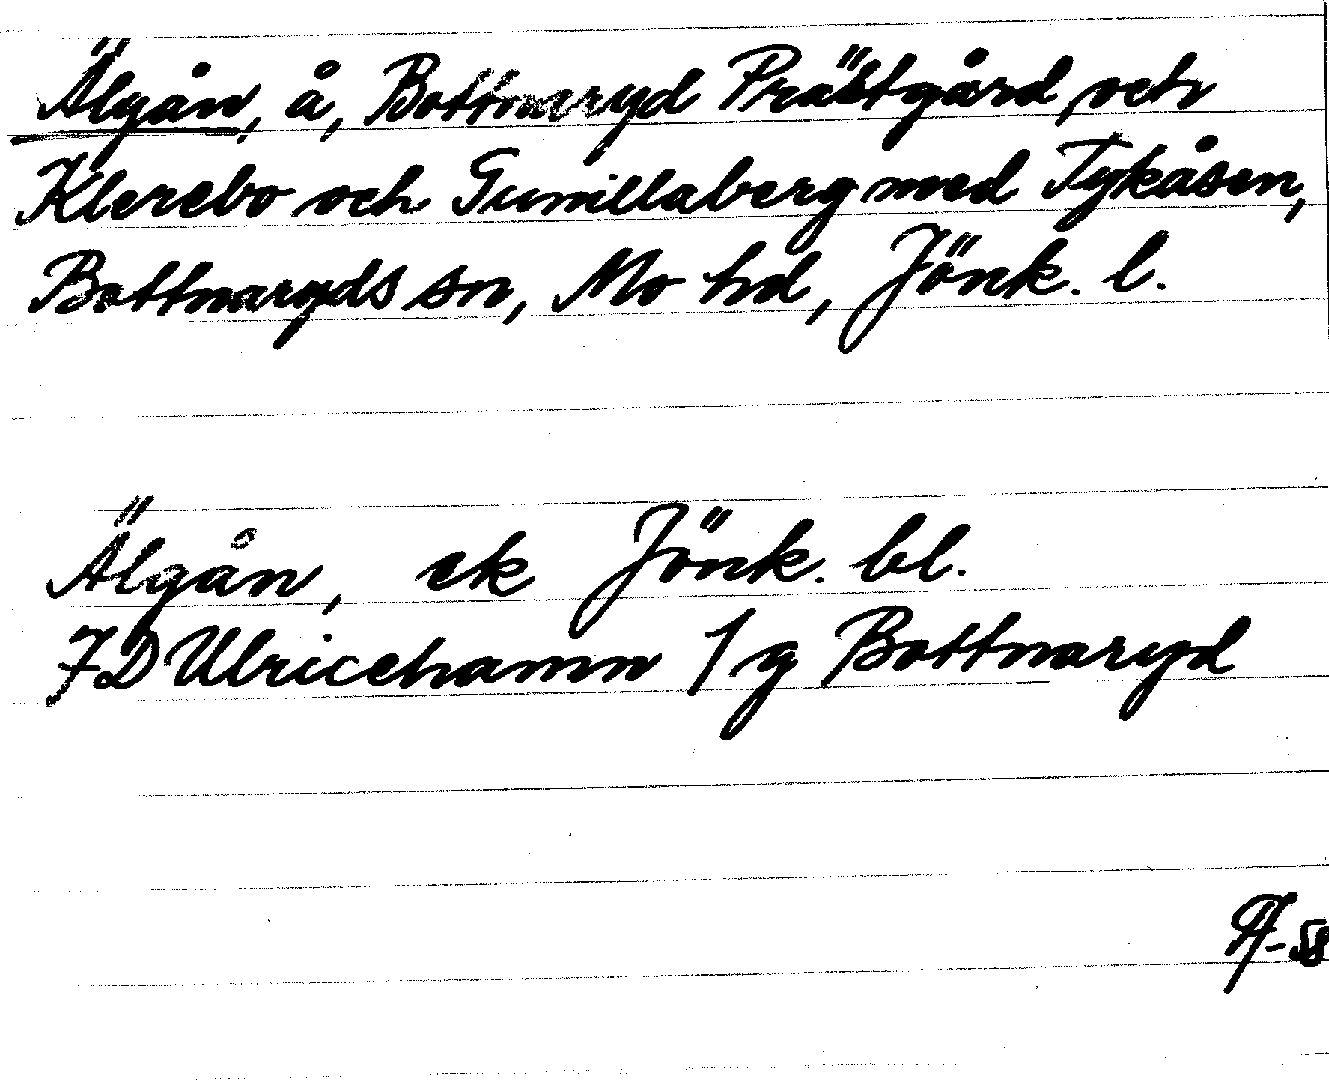 Älgån, å, Bottnaryd Prästgård och
Klerebo och Gunillaberg med Tykåsen,
Bottnaryds sn, Mo hd, Jönk. l.
Älgån, ek Jönk. bl.
7D Ulricehamn 1g Bottnaryd